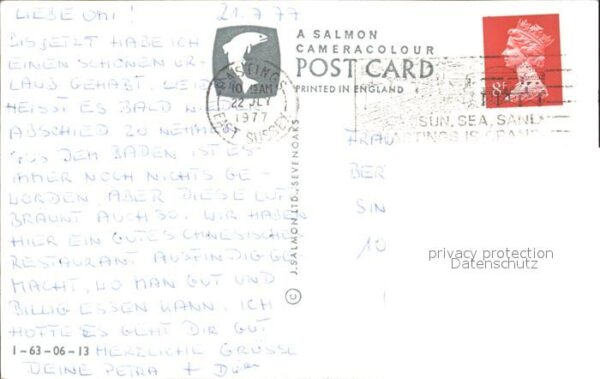 LIEBE OMI! 21.7.77
BIS JETZT HABE ICH
EINEN SCHÖNEN UR-
LAUB GEHABT. LEIDER
HEISST ES BALD
ABSCHIED ZU NEHMEN
AUS DEM BADEN IST ES
IMMER NOCH NICHTS GE-
WORDEN, ABER DIESE LUFT
BRAUNT AUCH SO. WIR HABEN
HIER EIN GUTES CHINESISCHES
RESTAURANT AUSFINDIG GE
MACHT, WO MAN GUT UND
BILLIG ESSEN KANN. ICH
HOFFE ES GEHT DIR GUT
HERZLICHE GRÜSSE
DEINE PETRA +
1-63-06-13
A SALMON
CAMERACOLOUR
POST CARD
PRINTED IN ENGLAND
© J. SALMON LTD., SEVENOAKS
HASTINGS
10.15AM
22 JLY
1977
EAST SUSSEX
SUN, SEA, SAND
HASTINGS IS GRAND
8P
FRAU
BER
SIN
10
privacy protection
Datenschutz